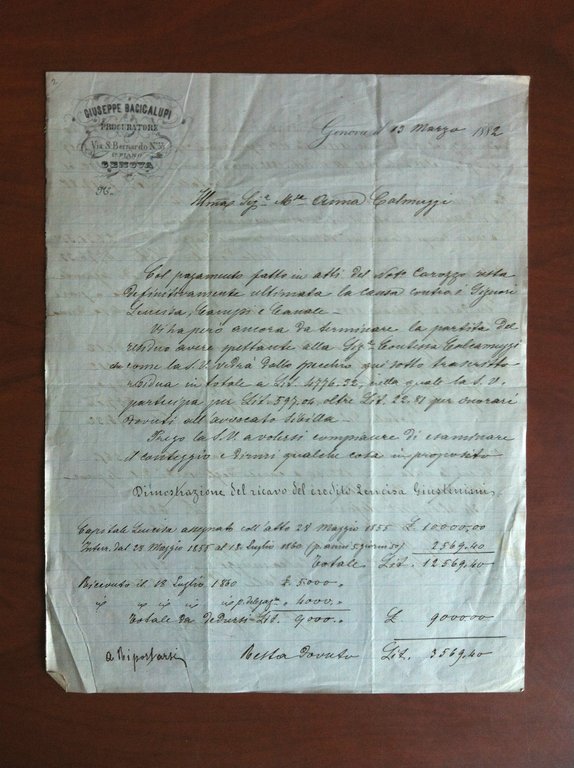 GIUSEPPE BACIGALUPI
PROCURATORE
Via S. Bernardo N.º 38
1.º PIANO
GENOVA
Genova il 13 Marzo 1882
Illma Sigra Anna Calmuzzi
Col pagamento fatto in atti del Noto Carozzo resta
definitivamente ultimata la causa contro i Signori
Lencisa, Campi e Canale —
Vi ha però ancora da terminare la partita del
residuo avere spettante alla Sigra Contina
come la S. V. vedrà dallo specchio qui sotto trascritto
residua in totale a Lit. 4776.32, nella quale la S. V.
partecipa per Lit. 597.04, oltre Lit. 22.81 per onorari
dovuti all'avvocato Sibilla —
Prego la S. V. a volersi compiacere di esaminare
il conteggio e dirmi qualche cosa in proposito
Dimostrazione del ricavo del credito Lencisa Giustiniani
Capitale Lencisa assegnato coll'atto 28 Maggio 1855 £ 10000.00
Inter. dal 28 Maggio 1855 al 18 Luglio 1860 (p. anni 5 giorni 50) 2569.40
Totale Lit. 12569.40
Ricevuto il 18 Luglio 1860 £ 5000.,
4000.,
Totale da dedursi Lit. 9000., £ 9000.00
a Riportarsi Resta dovuto Lit. 3569.40